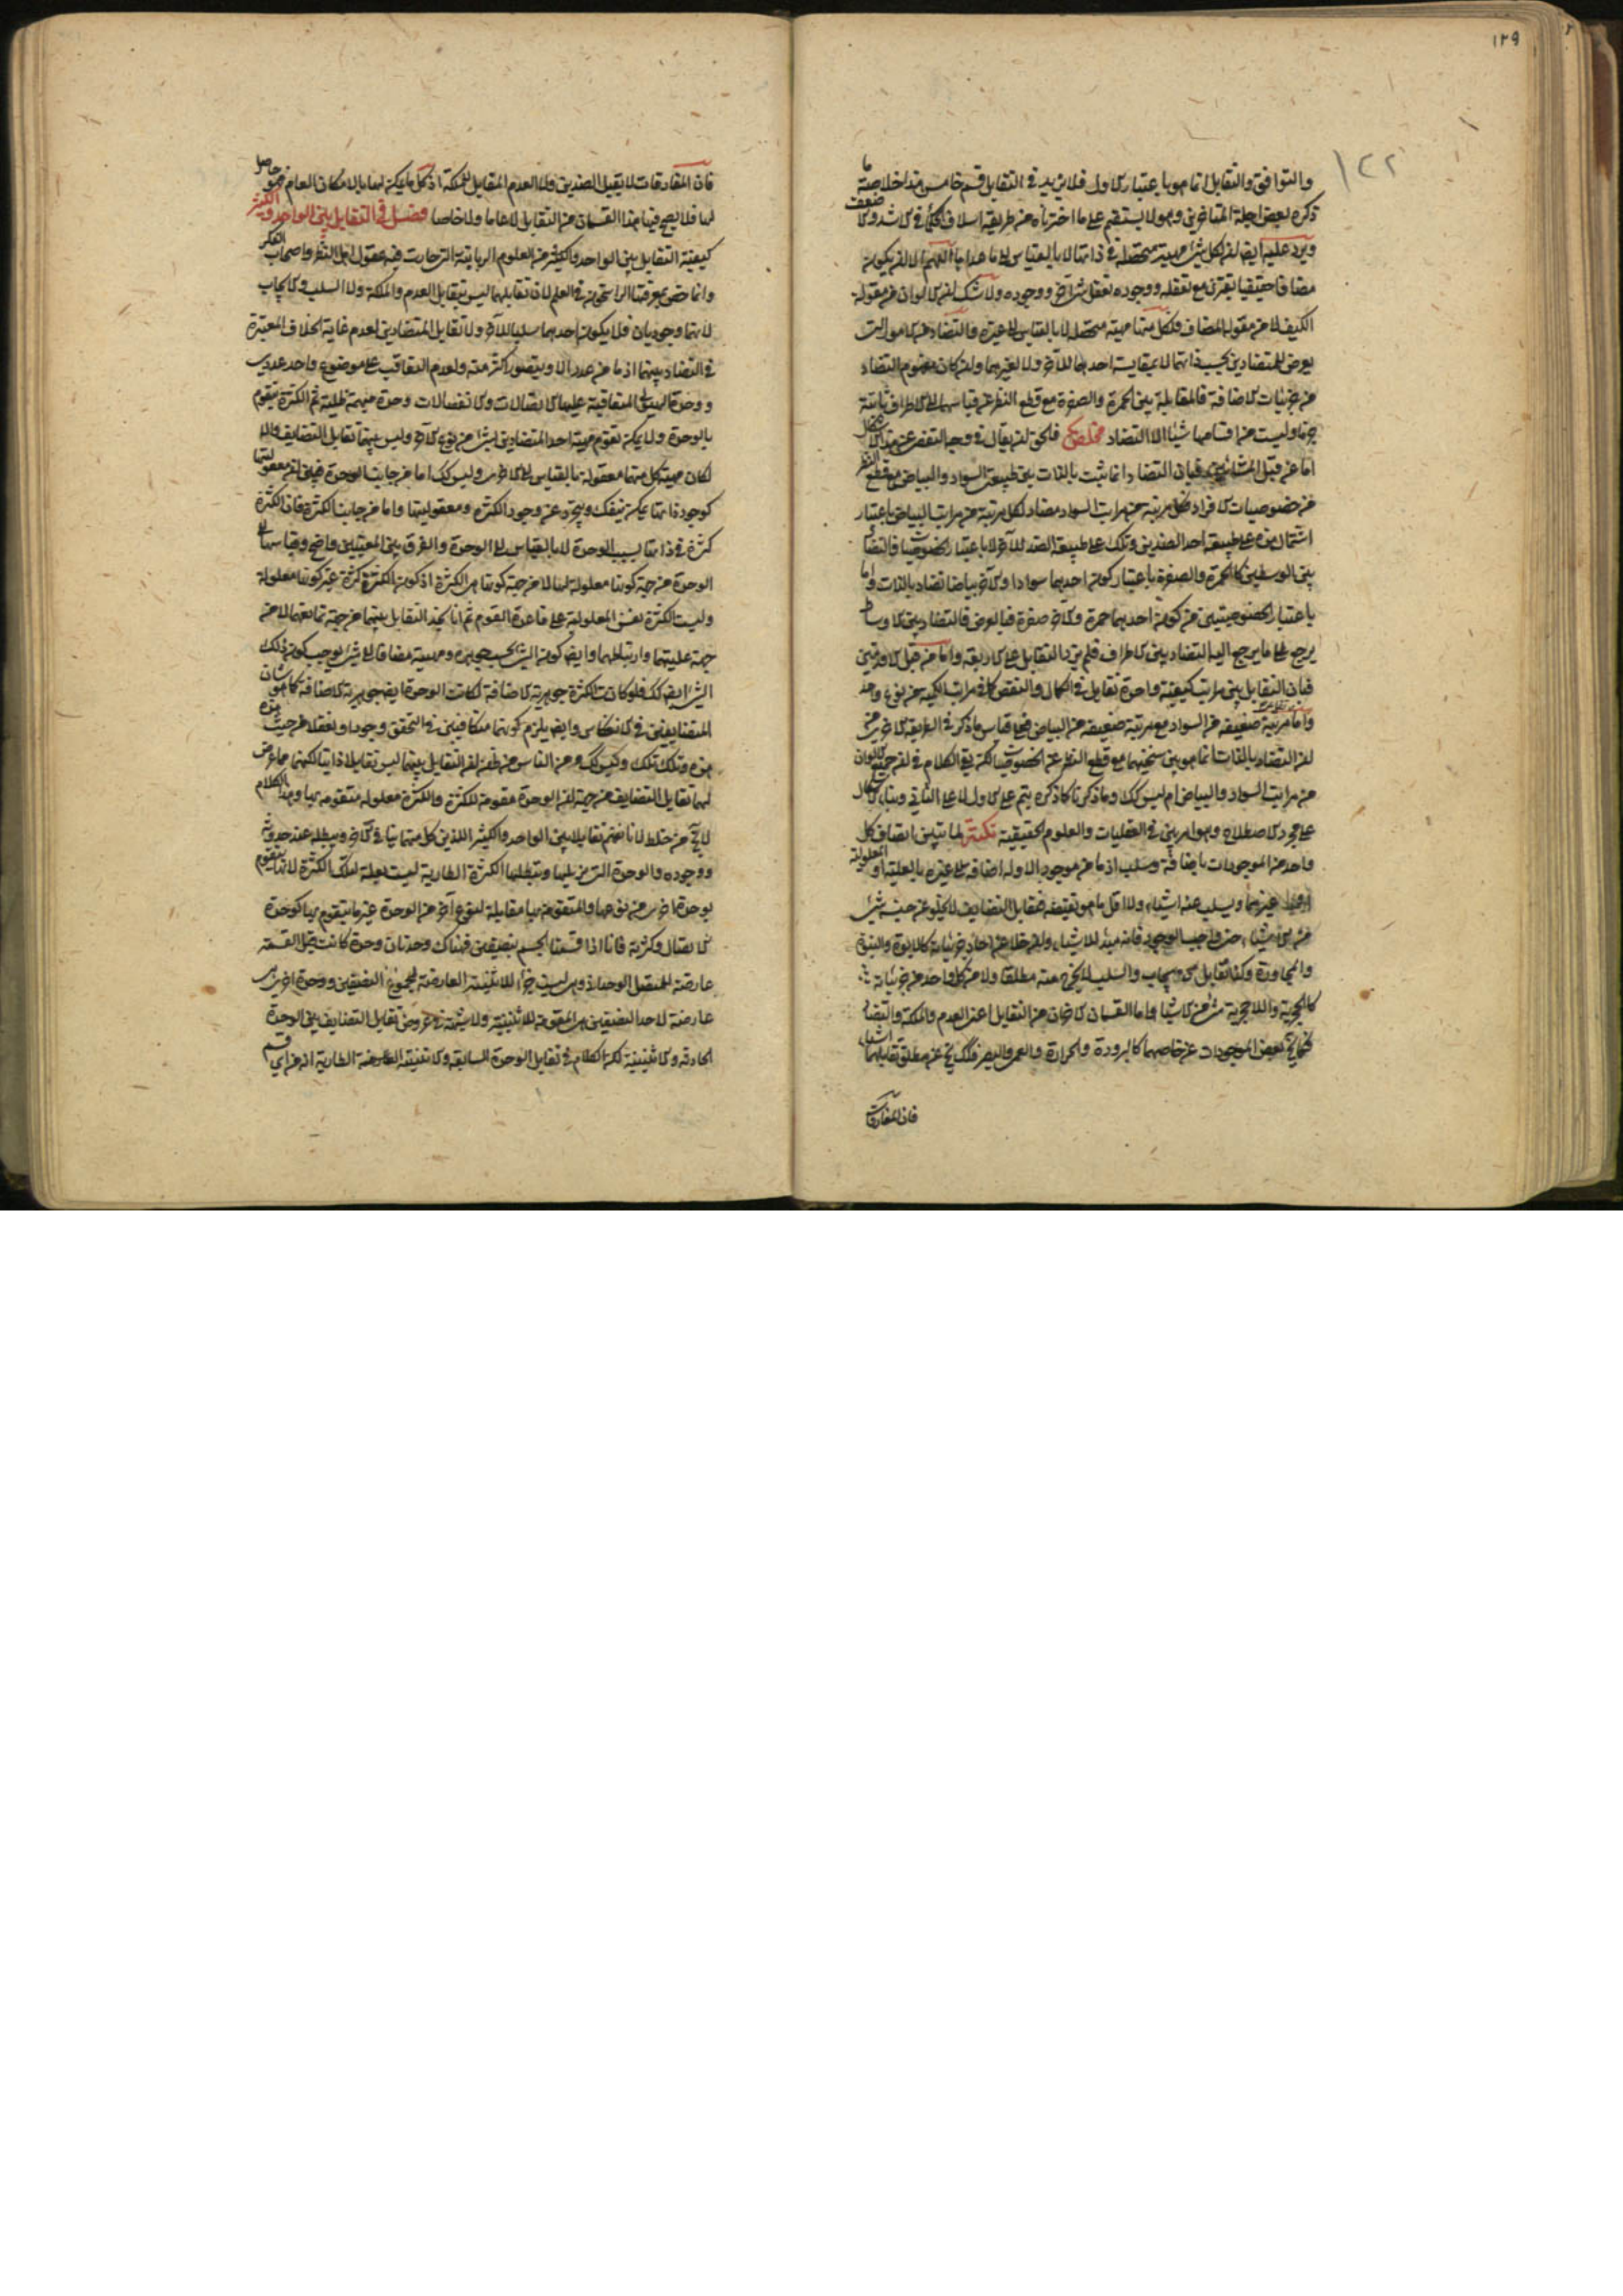 ١٢٩
١٢٢
والتوافق والتقابل انما هو باعتبار الاول فلا يزيد في التقابل قسم خامس هذا خلاصة ما
ذكره بعض اجلة المتاخرين وهو لا يستقيم على ما اخترناه من طريقة اسلاف الحكماء في الاشد والاضعف
ويرد عليه ايضا ان لكل مهية متحصلة في ذاتها لا بالقياس الى ما عداها اللهم الا ان يكون
مضافا حقيقيا يقترن مع تعقله ووجوده تعقل شئ اخر ووجوده ولا شك ان الالوان من مقولة
الكيف لا من مقولة المضاف فلكل منها مهية متحصلة لا بالقياس الى غيره والتضاد من الامور التي
يعرض للمتضادين بحسب ذاتهما لا بمقايسة احدهما للاخر ولا لغيرهما وان كان مفهوم التضاد
من جزئيات الاضافة فالمقابلة بين الحمرة والصفرة مع قطع النظر عن قياسهما الى الاطراف ثابتة
جزما وليست من اقسامها شيئا الا التضاد فالحق ان يقال في وجه التفصي عن هذا الاشكال
اما من قبل المشائين فبان التضاد انما يثبت بالذات بين طبيعتي السواد والبياض مع قطع النظر
من خصوصيات الافراد فكل مرتبة من مراتب السواد مضاد لكل مرتبة من مراتب البياض باعتبار
اشتمال هذه على طبيعة احد الضدين وتلك على طبيعة الضد للاخر لا باعتبار الخصوصيات فالتضاد
بين الوسطين كالحمرة والصفرة باعتبار كون احدهما سوادا والاخر بياضا تضاد بالذات واما
باعتبار الخصوصيتين من كون احدهما حمرة والاخر صفرة فبالعرض فالتضاد بين الاوساط
يرجع الى ما يرجع اليه التضاد بين الاطراف فلم يزد التقابل على الاربعة واما من قبل الاقدمين
فبان التقابل بين مراتب كيفية واحدة تقابل في الكمال والنقص كما في مراتب الكمية من نوع واحد
واما مرتبة ضعيفة من السواد مع مرتبة ضعيفة من البياض فعلى قياس ما ذكر في الطريقة الاخرى من
ان التضاد بالذات انما هو بين سنخيهما مع قطع النظر عن الخصوصيات لكن بقي الكلام في ان جميع الالوان
من مراتب السواد والبياض ام ليس كك وما ذكرنا كما ذكره يتم على الاول لا على الثاني وبناء الاشكال
على مجرد الاصطلاح وهو امر هين في العقليات والعلوم الحقيقية نكتة لما تبين اتصاف كل
واحد من الموجودات باضافة وسلب اذ ما من موجود الا وله اضافة الى غيره بالعلية او المعلولية
او غيرهما ويسلب عنه اشياء ولا اقل ما هو نقيضه فتقابل التضايف لا يخلو عن جنسه شئ
من الاشياء حتى واجب الوجود فانه مبدء للاشياء وان خلا عن احاد جزئياته كالابوة والبنوة
والمجاورة وكذا تقابل الايجاب والسلب لا يخرج عنه مطلقا ولا من كل واحد من جزئياته
كالحجرية واللاحجرية شئ من الاشياء واما القسمان الاخران من التقابل اعني العدم والملكة والتضاد
فكما يخ بعض الموجودات عن خاصهما كالبرودة والحرارة والعمى والبصر فكك يخ عن مطلق تقابلهما اشياء
فان المفارقات
فان المفارقات لا يقبل الضدين ولا العدم المقابل للملكة اذ كل ما يمكن لها بالامكان العام فهو حاصل
لها فلا يصح فيها هذا القسمان من التقابل لا عاما ولا خاصا فصل في التقابل بين الواحد والكثير
كيفية التقابل بين الواحد والكثير من العلوم الربانية التي حارت فيه عقول اهل النظر واصحاب الفكر
وانما خص بمعرفتها الراسخون في العلم لان تقابلهما ليس بتقابل العدم والملكة ولا السلب والايجاب
لانهما وجوديان فلا يكون احدهما سلبا للاخر ولا تقابل المتضادين لعدم غاية الخلاف المعتبرة
في التضاد بينهما اذ ما من عدد الا ويتصور اكثر منه ولعدم التعاقب على موضوع واحد عددي
ووحدة الهيولى المتعاقبة عليها الاتصالات والانفصالات وحدة مبهمة ظلية ثم الكثرة يتقوم
بالوحدة ولا يمكن تقوم مهية احد المتضادين بشئ من نوع الاخر وليس بينهما تقابل التضايف والا
لكان مهية كل منهما معقولة بالقياس الى الاخرى وليس كك اما من جانب الوحدة فلان معقوليتها
كوجود ذاتها يمكن ينفك ويتجرد عن وجود الكثرة ومعقوليتها واما من جانب الكثرة فان الكثرة
كثرة في ذاتها بسبب الوحدة لا بالقياس الى الوحدة والفرق بين المعنيين واضح وقياسها الى
الوحدة من جهة كونها معلولة لها لا من جهة كونها هي الكثرة اذ كون الكثرة كثرة غير كونها معلولة
وليست الكثرة نفس المعلولية على قاعدة القوم ثم انا نجد التقابل بينهما من جهة تمانعهما لا من
جهة عليتهما وارتباطهما وايضا كون الشئ بحسب جوهره ومهيته مضافا الى شئ يوجب كون ذلك
الشئ ايضا كك فلو كانت الكثرة جوهرية الاضافة لكانت الوحدة ايضا جوهرية الاضافة كما هو شان
المتضايفين في الانعكاس وايضا يلزم كونهما متكافيين في التحقق وجودا وتعقلا من حيث هذه
هذه وتلك تلك وليس كك ومن الناس من ظن ان التقابل بينهما ليس تقابلا ذاتيا لكنهما مما عرض
لهما تقابل التضايف من جهة ان الوحدة مقومة للكثرة والكثرة معلولة متقومة بها وهذا الكلام
لا يخ من خلط لانا نفهم تقابلا بين الواحد والكثير اللذين كل منهما ينافي الاخر ويبطله عند حدوثه
ووجوده والوحدة التي يزيلها وتبطلها الكثرة الطارية ليست بعلة لتلك الكثرة لانها يتقوم
بوحدة اخرى من نوعها والمتقومة بها مقابلة لنوع اخر من الوحدة غير ما يتقوم بها كوحدة
الاتصال وكثرته فانا اذا قسمنا الجسم بنصفين فهناك وحدتان وحدة كانت قبل القسمة
عارضة للمتصل الوحداني وهي ليست جزء للاثنينية العارضة لمجموع النصفين ووحدة اخرى
عارضة لاحد النصفين هي المقومة للاثنينية ولا شبهة في عروض تقابل التضايف بين الوحدة
الحادثة والاثنينية لكن الكلام في تقابل الوحدة السابقة والاثنينية الطارية انه من اي قسم